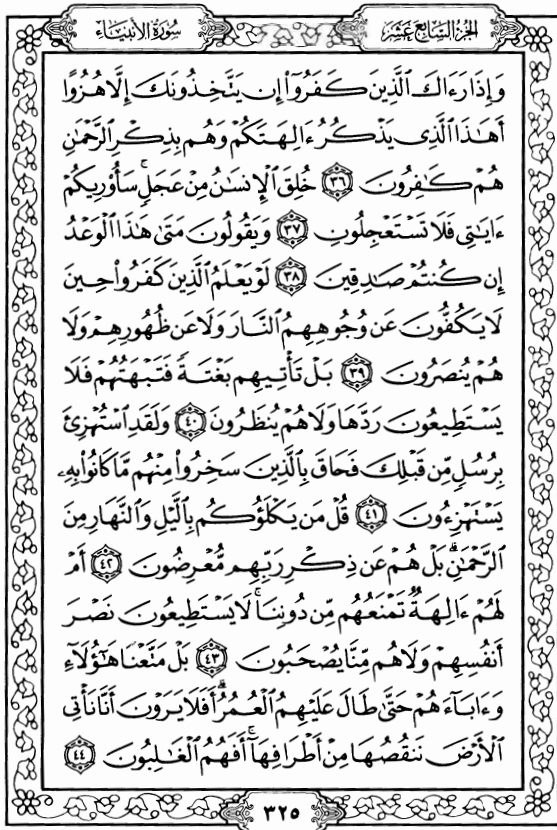 سُورَةُ الأَنبِيَاءِ
الجُزْءُ السَّابِعَ عَشَرَ
وَإِذَا رَءَاكَ ٱلَّذِينَ كَفَرُوٓا۟ إِن يَتَّخِذُونَكَ إِلَّا هُزُوًا
أَهَٰذَا ٱلَّذِى يَذْكُرُ ءَالِهَتَكُمْ وَهُم بِذِكْرِ ٱلرَّحْمَٰنِ
هُمْ كَٰفِرُونَ ٣٦ خُلِقَ ٱلْإِنسَٰنُ مِنْ عَجَلٍ ۚ سَأُو۟رِيكُمْ
ءَايَٰتِى فَلَا تَسْتَعْجِلُونِ ٣٧ وَيَقُولُونَ مَتَىٰ هَٰذَا ٱلْوَعْدُ
إِن كُنتُمْ صَٰدِقِينَ ٣٨ لَوْ يَعْلَمُ ٱلَّذِينَ كَفَرُوا۟ حِينَ
لَا يَكُفُّونَ عَن وُجُوهِهِمُ ٱلنَّارَ وَلَا عَن ظُهُورِهِمْ وَلَا
هُمْ يُنصَرُونَ ٣٩ بَلْ تَأْتِيهِم بَغْتَةً فَتَبْهَتُهُمْ فَلَا
يَسْتَطِيعُونَ رَدَّهَا وَلَا هُمْ يُنظَرُونَ ٤٠ وَلَقَدِ ٱسْتُهْزِئَ
بِرُسُلٍ مِّن قَبْلِكَ فَحَاقَ بِٱلَّذِينَ سَخِرُوا۟ مِنْهُم مَّا كَانُوا۟ بِهِۦ
يَسْتَهْزِءُونَ ٤١ قُلْ مَن يَكْلَؤُكُم بِٱلَّيْلِ وَٱلنَّهَارِ مِنَ
ٱلرَّحْمَٰنِ ۗ بَلْ هُمْ عَن ذِكْرِ رَبِّهِم مُّعْرِضُونَ ٤٢ أَمْ
لَهُمْ ءَالِهَةٌ تَمْنَعُهُم مِّن دُونِنَا ۚ لَا يَسْتَطِيعُونَ نَصْرَ
أَنفُسِهِمْ وَلَا هُم مِّنَّا يُصْحَبُونَ ٤٣ بَلْ مَتَّعْنَا هَٰٓؤُلَآءِ
وَءَابَآءَهُمْ حَتَّىٰ طَالَ عَلَيْهِمُ ٱلْعُمُرُ ۗ أَفَلَا يَرَوْنَ أَنَّا نَأْتِى
ٱلْأَرْضَ نَنقُصُهَا مِنْ أَطْرَافِهَآ ۚ أَفَهُمُ ٱلْغَٰلِبُونَ ٤٤
٣٢٥